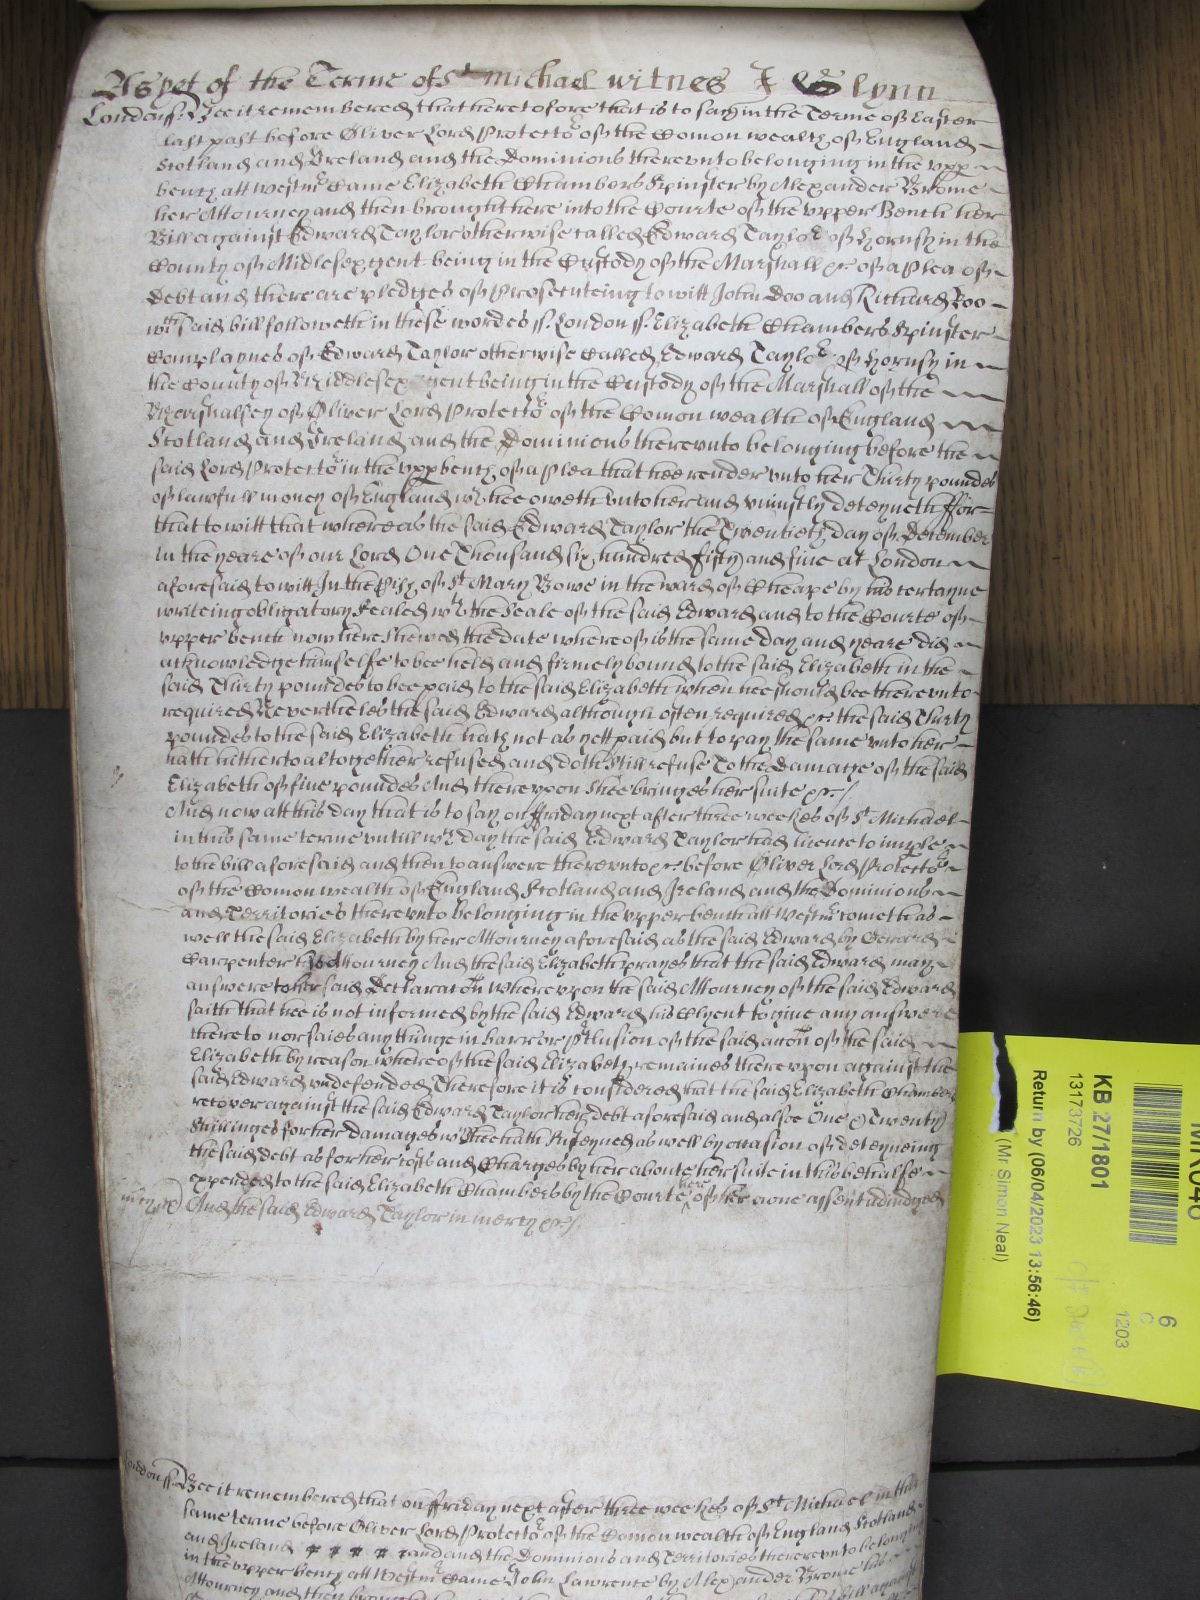 As yet of the Terme of St Michael witnes J Glynn
London ss. Bee it remembered that heretofore that is to say in the Terme of Easter
last past before Oliver Lord Protector of the Comon wealth of England
Scotland and Ireland and the Dominions therevnto belonging in the vpp
bench att Westmr Came Elizabeth Chambers Spinster by Alexander Brome
her Attourney and then brought here into the Courte of the vpper Bench her
Bill against Edward Taylor otherwise called Edward Taylor of Hornsy in the
County of Midlesex gent being in the Custody of the Marshall &c. of a Plea of
debt and there are pledges of Prosecuteing to witt John Doo and Richard Roo
wch said bill followeth in these wordes ss. London ss. Elizabeth Chambers Spinster
Complaynes of Edward Taylor otherwise Called Edward Taylor of Hornsy in
the County of Middlesex gent being in the Custody of the Marshall of the
Marshalsey of Oliver Lord Protector of the Comon wealth of England
Scotland and Ireland and the Dominions therevnto belonging before the
said Lord Protector in the vpp bench of a Plea that hee render vnto her Thirty poundes
of lawfull money of England wch hee oweth vnto her and viniustly deteyneth ffor
that to witt that whereas the said Edward Taylor the Twentieth day of December
in the yeare of our Lord One Thousand six hundred fifty and five at London
aforesaid to witt In the Pish of St Mary Bowe in the ward of Cheape by his certayne
writeing obligatory Sealed wth the Seale of the said Edward and to the Courte of
vpper bench now here Shewed the date whereof is the same day and yeare did
acknowledge himselfe to bee held and firmely bound to the said Elizabeth in the
said Thirty poundes to bee paid to the said Elizabeth when hee should bee therevnto
required Neverthelesse the said Edward although often required &c. the said Thirty
poundes to the said Elizabeth hath not as yett paid but to pay the same vnto her
hath hitherto altogether refused and doth still refuse To the Damage of the said
Elizabeth of five poundes And therevpon shee bringes her suite &c./
And now att this day that is to say on ffriday next after three weekes of St Michael
in this same terme vntill wch day the said Edward Taylor had licence to imple
to the bill aforesaid and then to answere therevnto &c. before Oliver Lord Protector
of the Comon wealth of England Scotland and Ireland and the Dominions
and Territories therevnto belonging in the vpper bench att Westmr cometh as
well the said Elizabeth by her Attourney aforesaid as the said Edward by Gerard
Carpenter his Attourney And the said Elizabeth prayes that the said Edward may
answere to her said Declaracon wherevpon the said Attourney of the said Edward
saith that hee is not informed by the said Edward his Clyent to give any answere
there to nor saies any thinge in barr or pclusion of the said accon of the said
Elizabeth by reason whereof the said Elizabeth remaines therevpon against the
said Edward vndefended Therefore it is considered that the said Elizabeth Chambers
recover against the said Edward Taylor her debt aforesaid and alsoe One & Twenty
Shillinges for her damages wch shee hath susteyned as well by occasion of deteyneing
the said debt as for her costs and Charges by her aboute her suite in this behalfe
expended to the said Elizabeth Chambers by the Courte here of her owne assent adiudged
mercy &c) And the said Edward Taylor in mercy &c./
London ss. Bee it remembered that on ffriday next after three weekes of St Michael in this
same terme before Oliver Lord Protector of the Comon wealth of England Scotland
and Ireland and the Dominions and Territories therevnto belonging
in the vpper bench att Westmr Came John Lawrence by Alexander Brome his
Attourney and then brought
KB 27/1801
13173726
Return by (06/04/2023 13:56:46)
(Mr Simon Neal)
6
C
1203